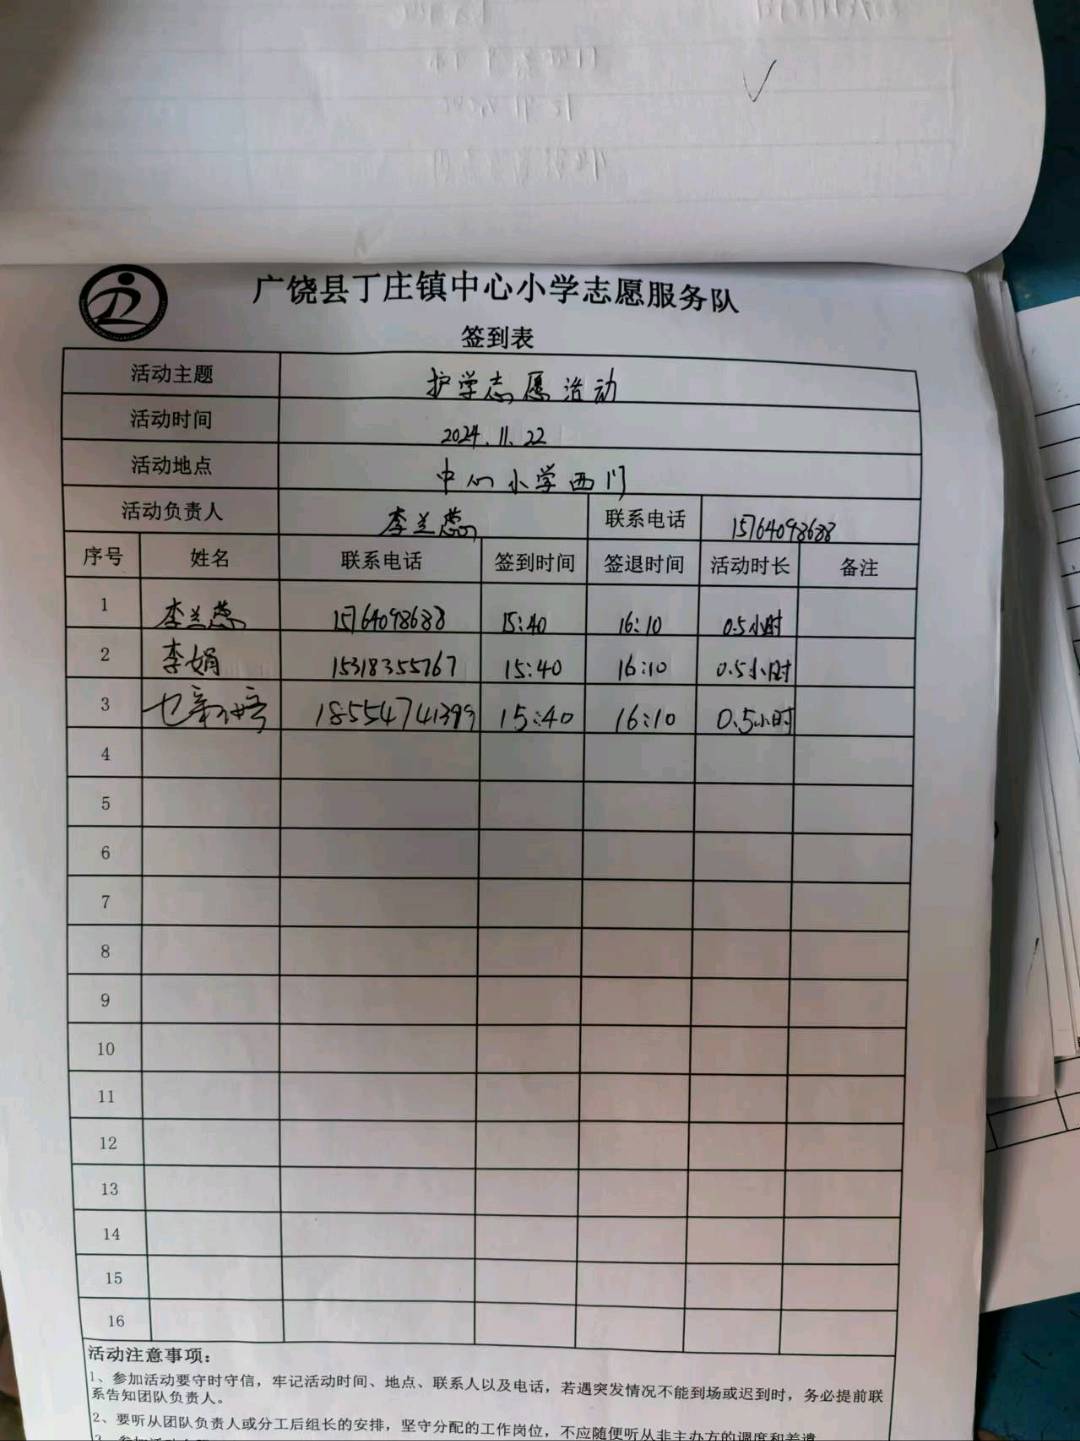 广饶县丁庄镇中心小学志愿服务队
签到表
活动主题 护学志愿活动
活动时间 2024.11.22
活动地点 中心小学西门
活动负责人 李兰蕊 联系电话 15764098688
序号 姓名 联系电话 签到时间 签退时间 活动时长 备注
1 李兰蕊 15764098688 15:40 16:10 0.5小时
2 李娟 15318355767 15:40 16:10 0.5小时
3 18554741399 15:40 16:10 0.5小时
4
5
6
7
8
9
10
11
12
13
14
15
16
活动注意事项：
1、参加活动要守时守信，牢记活动时间、地点、联系人以及电话，若遇突发情况不能到场或迟到时，务必提前联
系告知团队负责人。
2、要听从团队负责人或分工后组长的安排，坚守分配的工作岗位，不应随便听从非主办方的调度和差遣